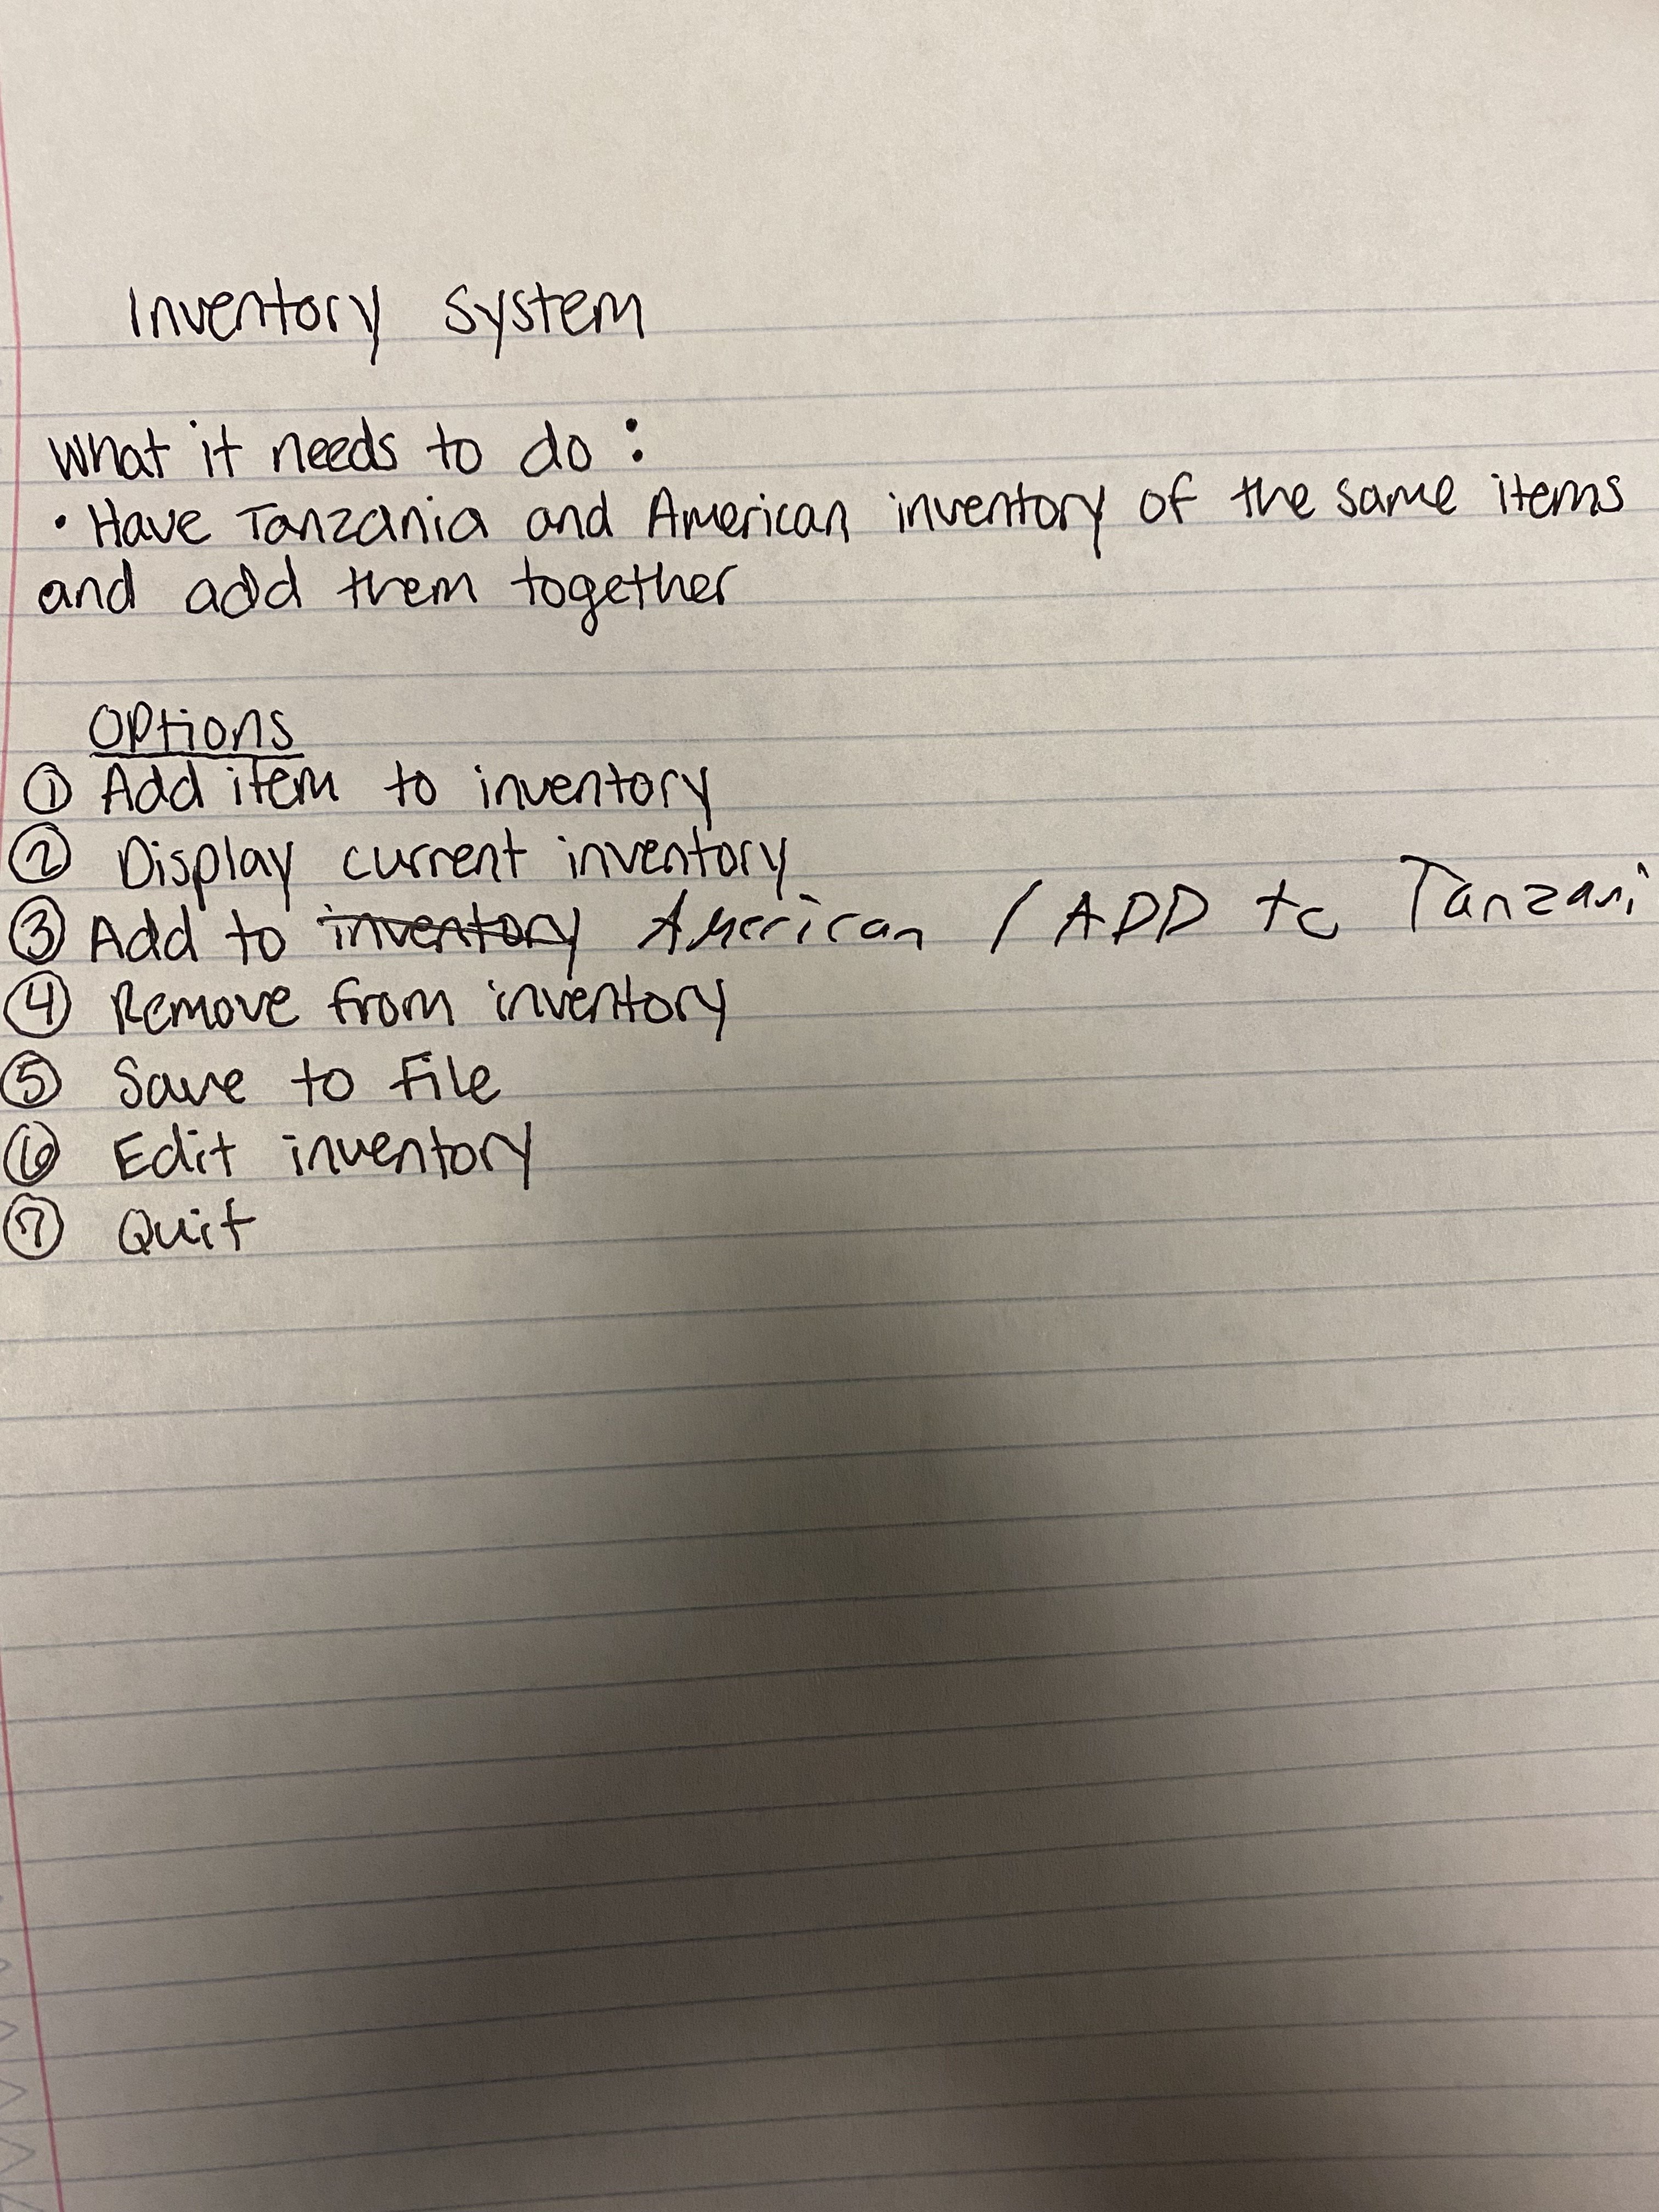 Inventory System
What it needs to do:
• Have Tanzania and American inventory of the same items
and add them together
Options
① Add item to inventory
② Display current inventory
③ Add to inventory American / ADD to Tanzani
④ Remove from inventory
⑤ Save to File
⑥ Edit inventory
⑦ Quit